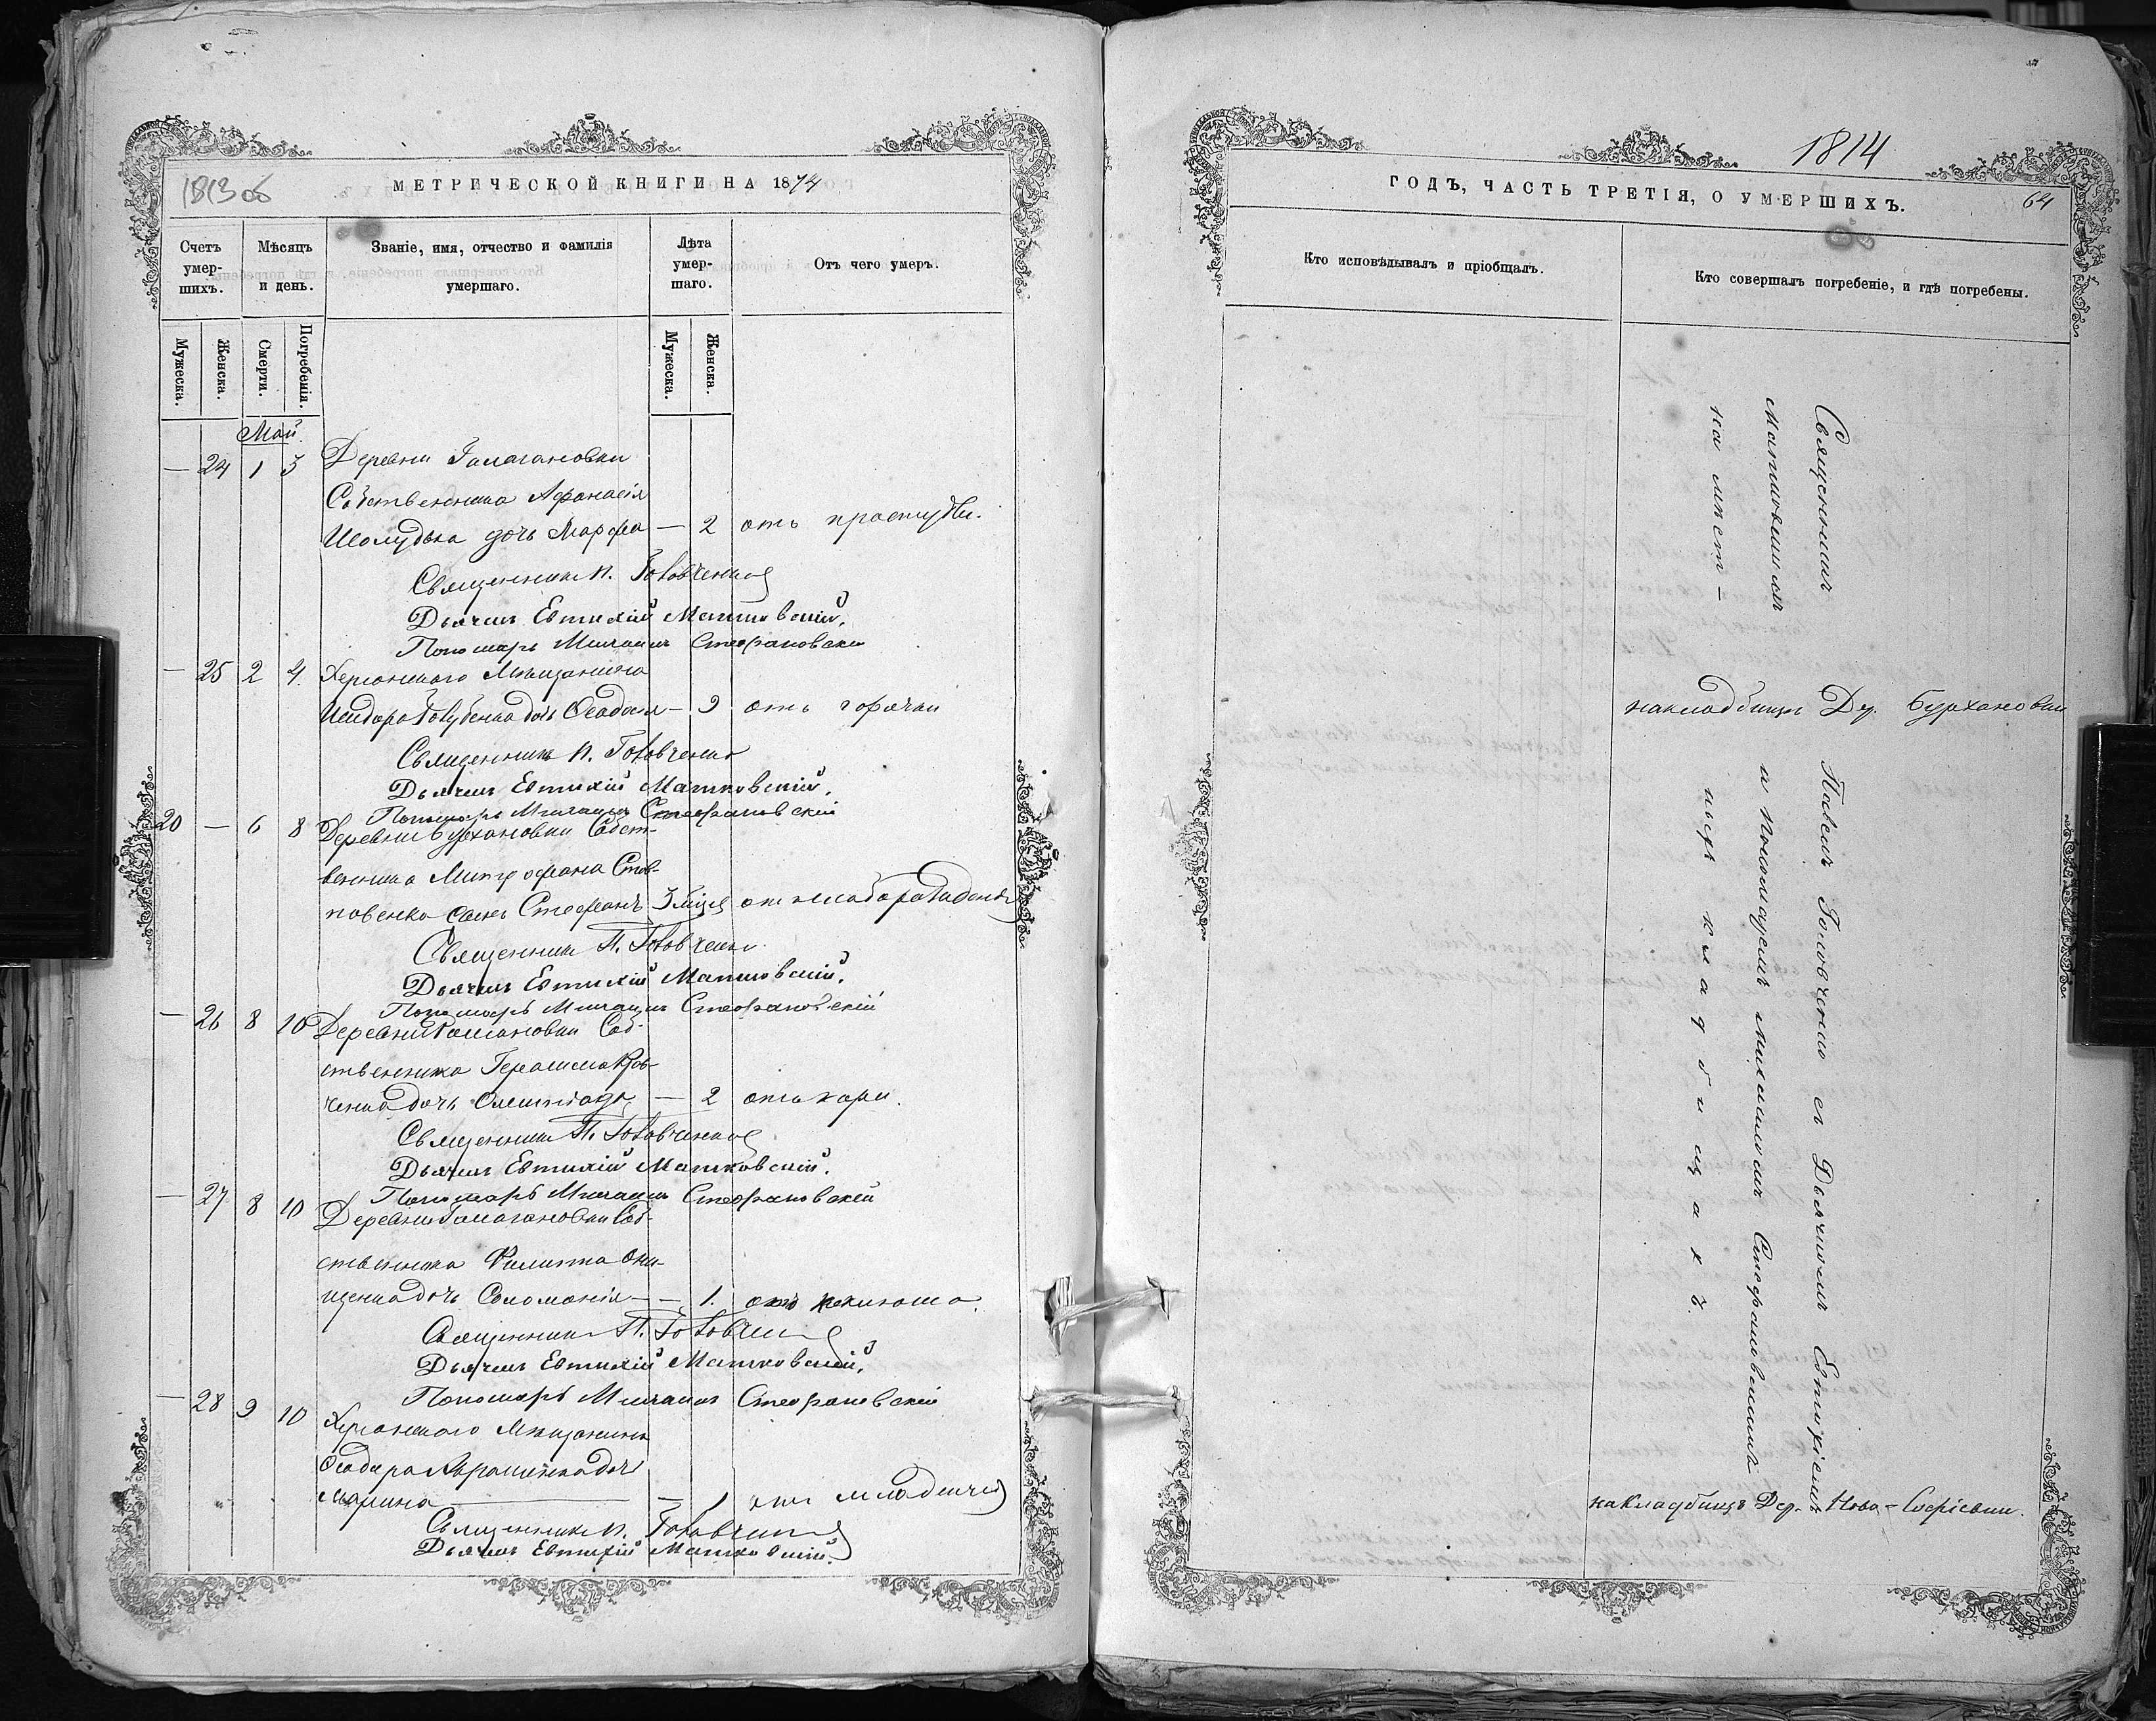 1813 об
МЕТРИЧЕСКОЙ КНИГИ НА 1874
Счетъ умер-шихъ.
Мѣсяцъ и день.
Званіе, имя, отчество и фамилія умершаго.
Лѣта умер-шаго.
Отъ чего умеръ.
Мужеска.
Женска.
Смерти.
Погребенія.
Мужеска.
Женска.
Май.
— 24 1 3 Деревни
Собственника Афанасія
Шолудька дочь Марфа — 2 отъ простуды.
Священникъ П. Головченко
Дьячекъ Евтихій Матковскій.
Пономарь Михаилъ Стефановскій
— 25 2 4. Херсонскаго Мѣщанина
Исидора Голубенка дочь Феодосія — 9 отъ горячки
Священникъ П. Головченко
Дьячекъ Евтихій Матковскій.
Пономарь Михаилъ Стефановскій
20 — 6 8 Деревни Бурхановки Собст-
венника Митрофана
сынъ Стефанъ 3 мѣся
Священникъ П. Головченко
Дьячекъ Евтихій Матковскій.
Пономарь Михаилъ Стефановскій
— 26 8 10 Деревни Соб-
ственника Герасима
ченка дочь — 2 отъ кори.
Священникъ П. Головченко
Дьячекъ Евтихій Матковскій.
Пономарь Михаилъ Стефановскій
— 27 8 10 Деревни Соб-
ственника Филиппа Они-
щенка дочь Соломонія — — 1. отъ
Священникъ П. Головченко
Дьячекъ Евтихій Матковскій.
Пономарь Михаилъ Стефановскій
— 28 9 10 Херсонскаго Мѣщанина
Феодора дочь
Марина — — 1 отъ младенчес
Священникъ П. Головченко
Дьячекъ Евтихій Матковскій.
1814
ГОДЪ, ЧАСТЬ ТРЕТІЯ, О УМЕРШИХЪ.
64
Кто исповѣдывалъ и пріобщалъ.
Кто совершалъ погребеніе, и гдѣ погребены.
Священникъ Павелъ Головченко съ Дьячкомъ Евтихіемъ
Матковскимъ и Пономаремъ Михаиломъ Стефановскимъ
на мѣст-ныхъ кладбищахъ.
на кладбищѣ Дер. Бурхановки
на кладбищѣ Дер. Ново-Софіевки.